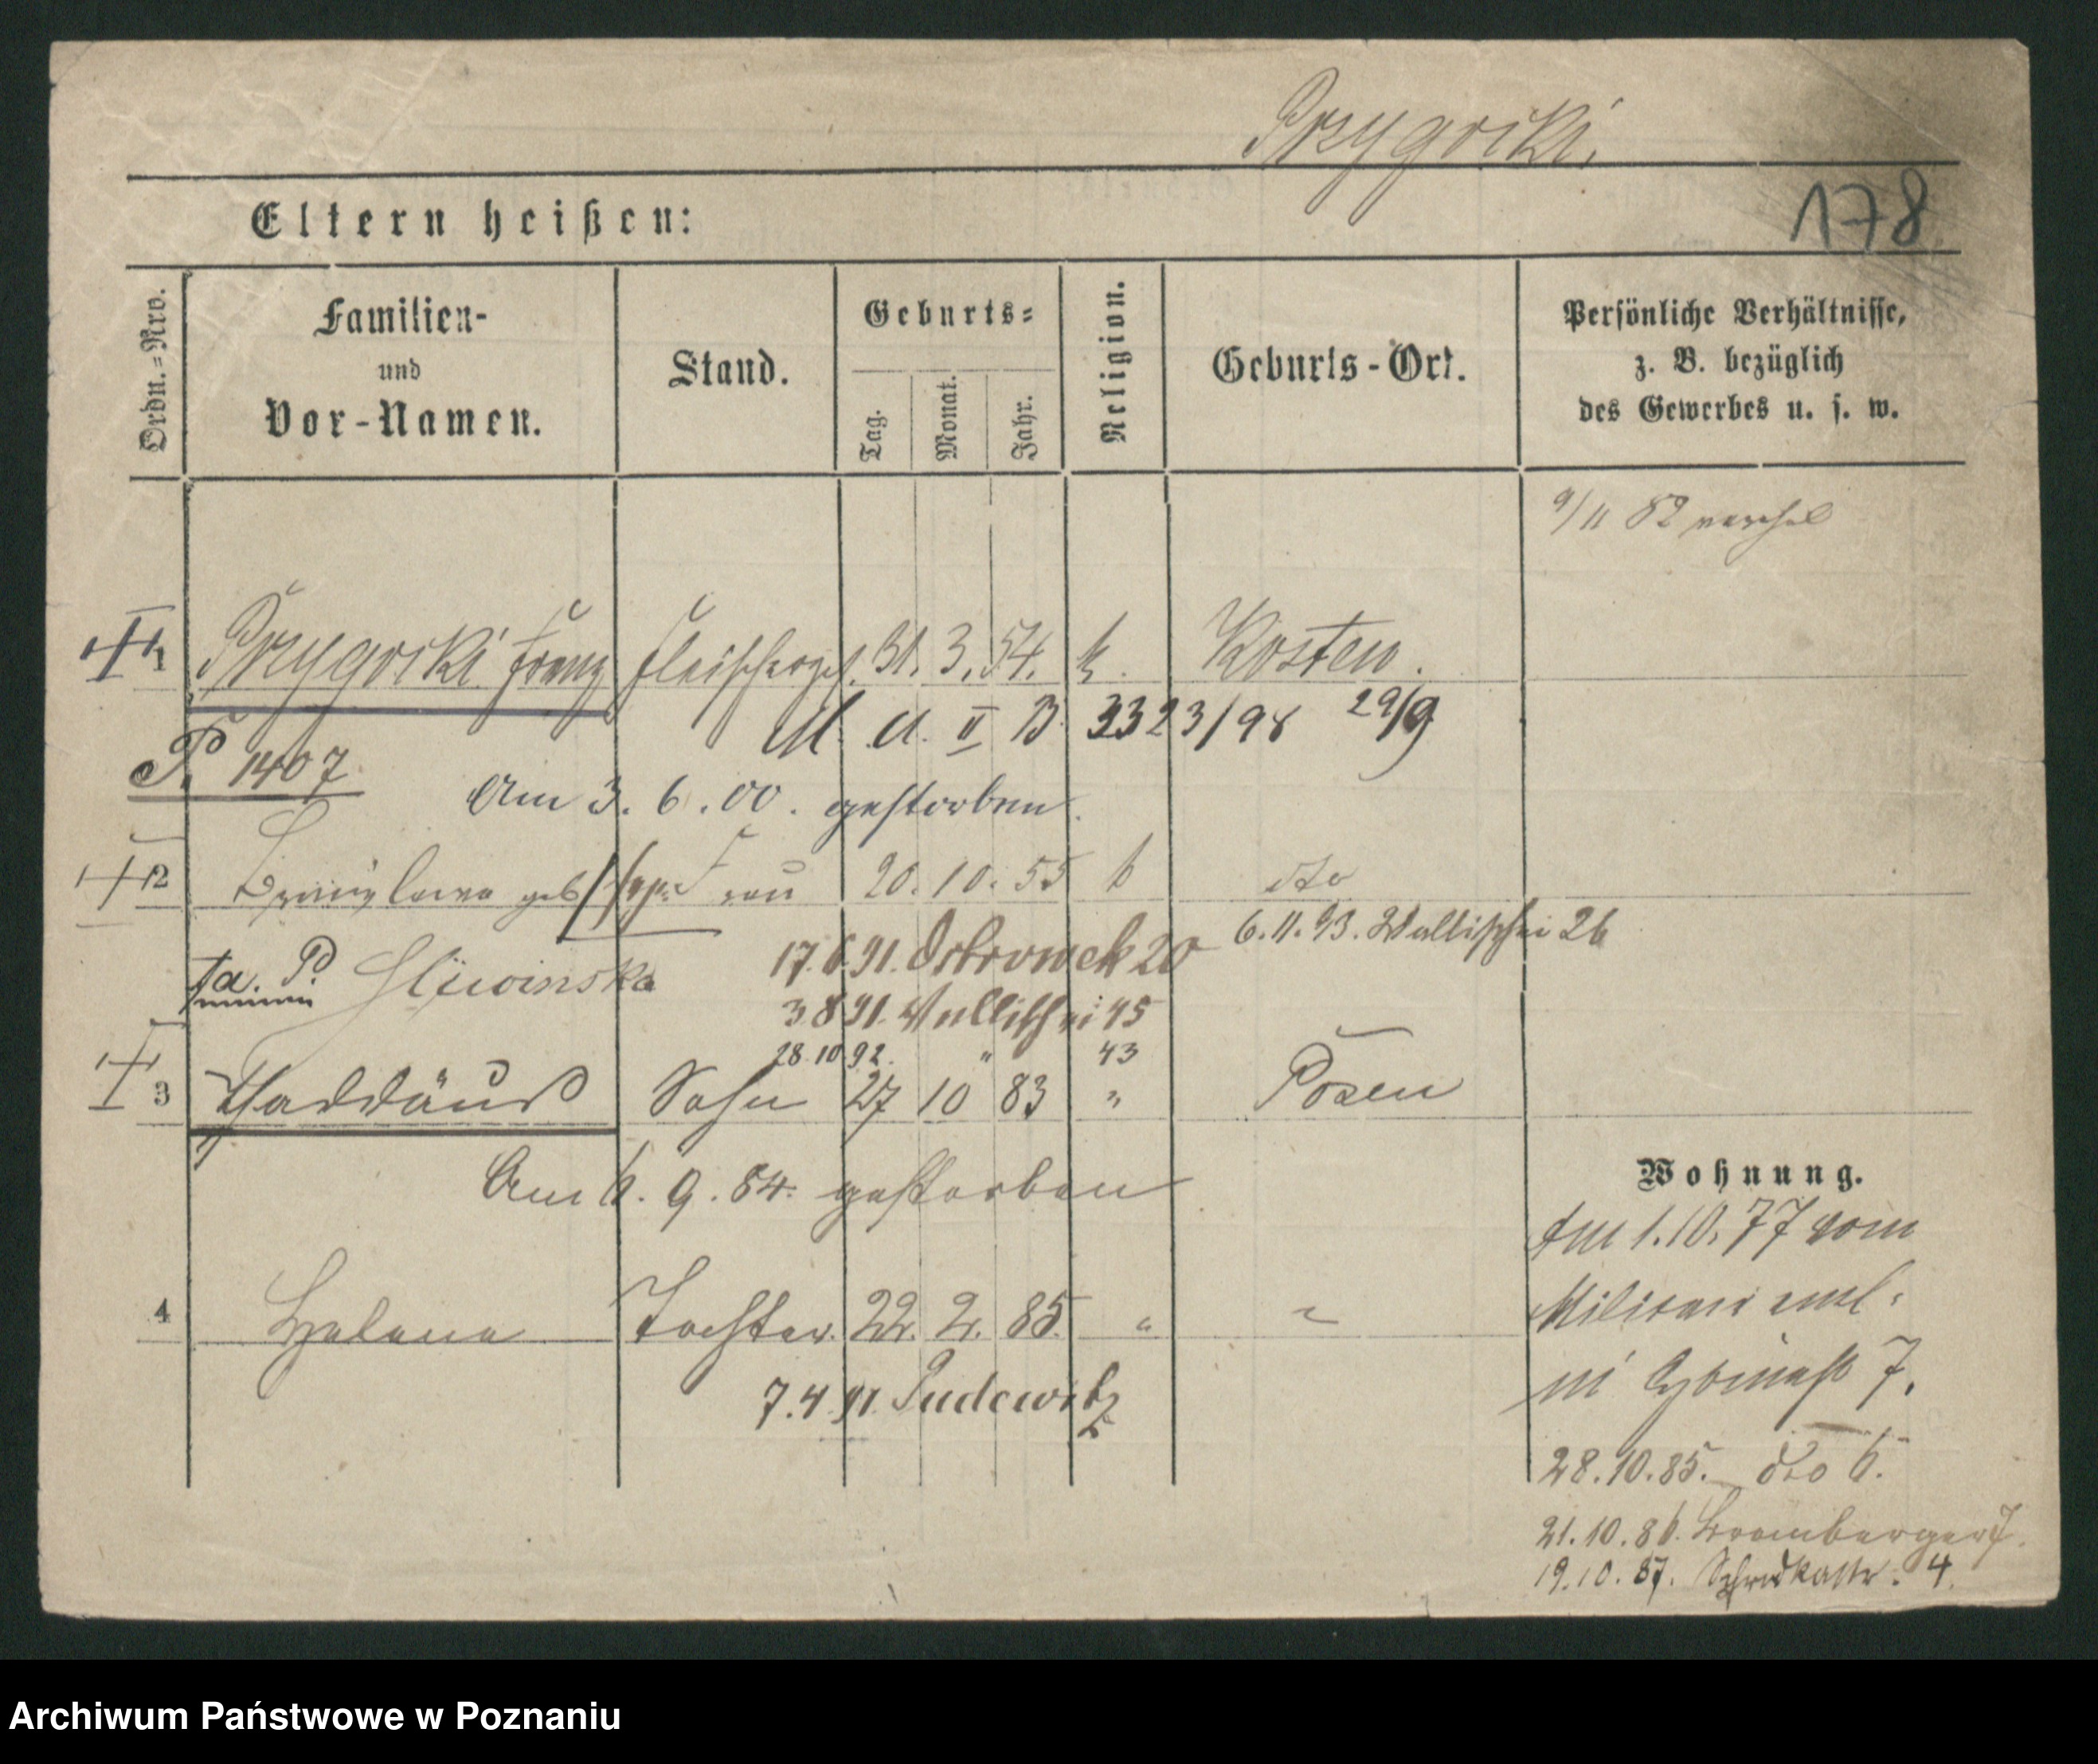 Przygocki
178
Eltern heißen:
Ordn.=Nro.
Familien-
und
Vor-Namen.
Stand.
Geburts=
Tag.
Monat.
Jahr.
Religion.
Geburts-Ort.
Persönliche Verhältnisse,
z. B. bezüglich
des Gewerbes u. s. w.
9/11 82
1 Przygocki Franz Fleischerges. 31. 3. 54. k. Kosten.
M. A. II B 3323/98 29/9
P. 1407
Am 3. 6. 00. gestorben.
2 geb Frau 20. 10. 55 k dto
6. 11. 93. Wallischei 26
P. Sliwinska 17. 6. 91. Ostrowek 20
3 8 91. Wallischei 45
28 10 92. " 43
3 Thaddäus Sohn 27 10 83 " Posen
Am 6. 9. 84. gestorben
Wohnung.
Am 1. 10. 77 vom
Militair entl.
4 Helena Tochter. 22. 2. 85. "
7. 4. 91. Pudewitz
7.
28. 10. 85. dto 6.
21. 10. 86. Bromberger 7.
19. 10. 87. 4.